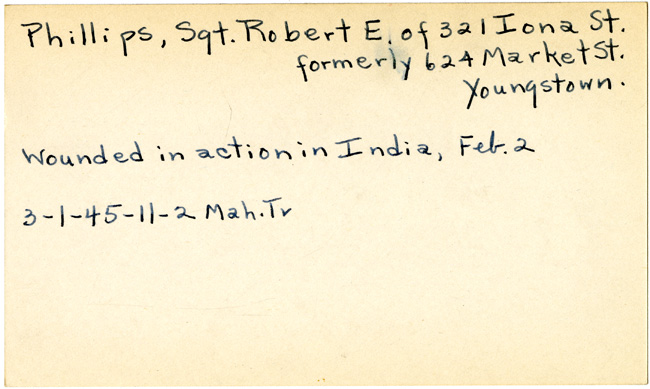 Phillips, Sgt. Robert E. of 321 Iona St.
formerly 624 Market St.
Youngstown.
Wounded in action in India, Feb. 2
3-1-45-11-2 Mah. Tr